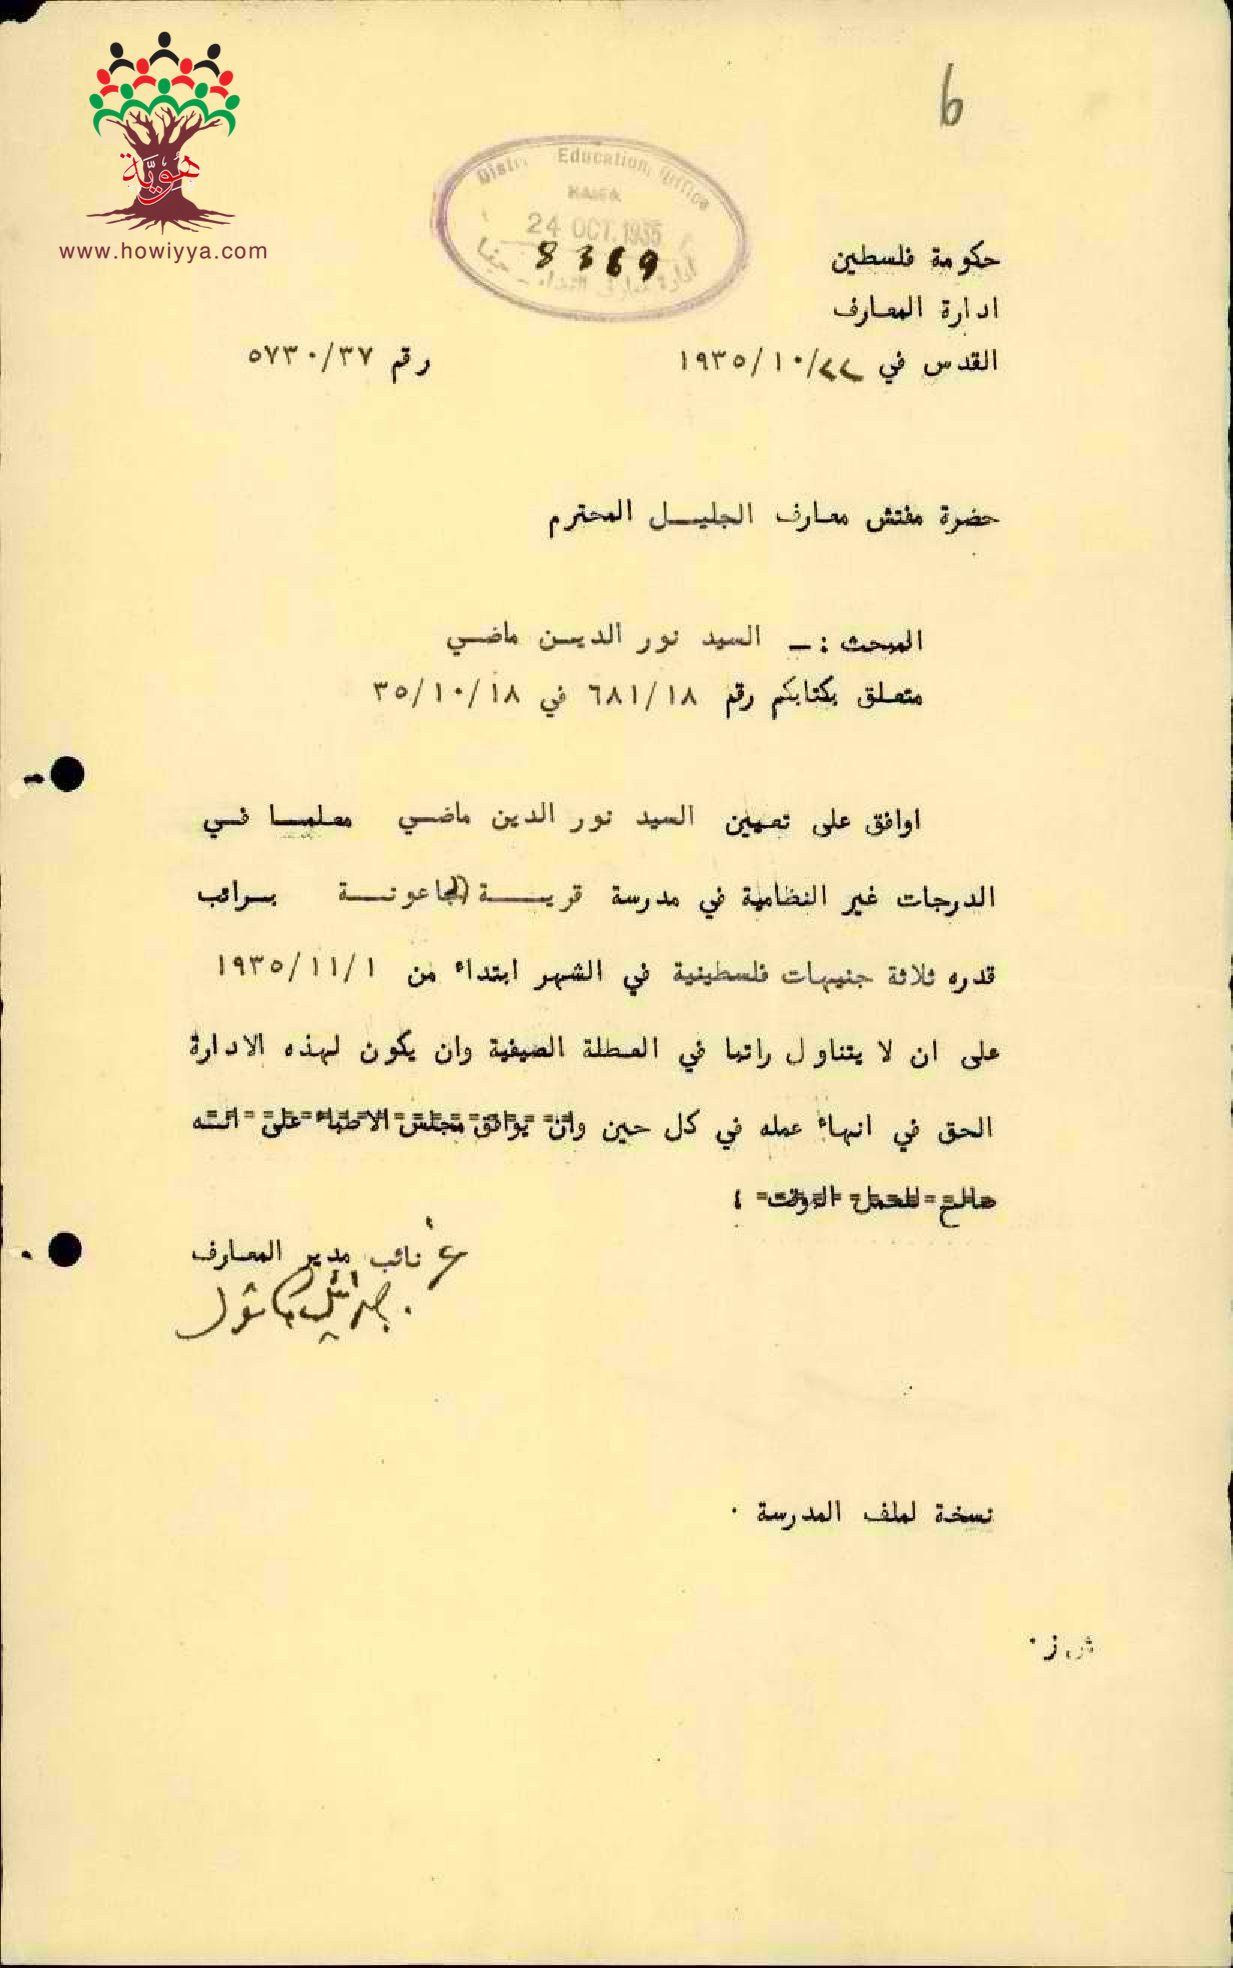 هوية
www.howiyya.com
6
Education Office
24 OCT. 1935
8369
حكومة فلسطين
ادارة المعارف
القدس في ٢٢/١٠/١٩٣٥
رقم ٥٧٣٠/٣٧
حضرة مفتش معارف الجليل المحترم
المبحث :ـ السيد نور الدين ماضي
متعلق بكتابكم رقم ٦٨١/١٨ في ٣٥/١٠/١٨
اوافق على تعيين السيد نور الدين ماضي معلما في
الدرجات غير النظامية في مدرسة قرية الجاعونة براتب
قدره ثلاثة جنيهات فلسطينية في الشهر ابتداء من ١٩٣٥/١١/١
على ان لا يتناول راتبا في العطلة الصيفية وان يكون لهذه الادارة
الحق في انهاء عمله في كل حين وان يوافق مجلس الاطباء على انه
صالح للعمل الموقت ؛
ع نائب مدير المعارف
جبرائيل كاتول
نسخة لملف المدرسة ٠
ش ز ٠